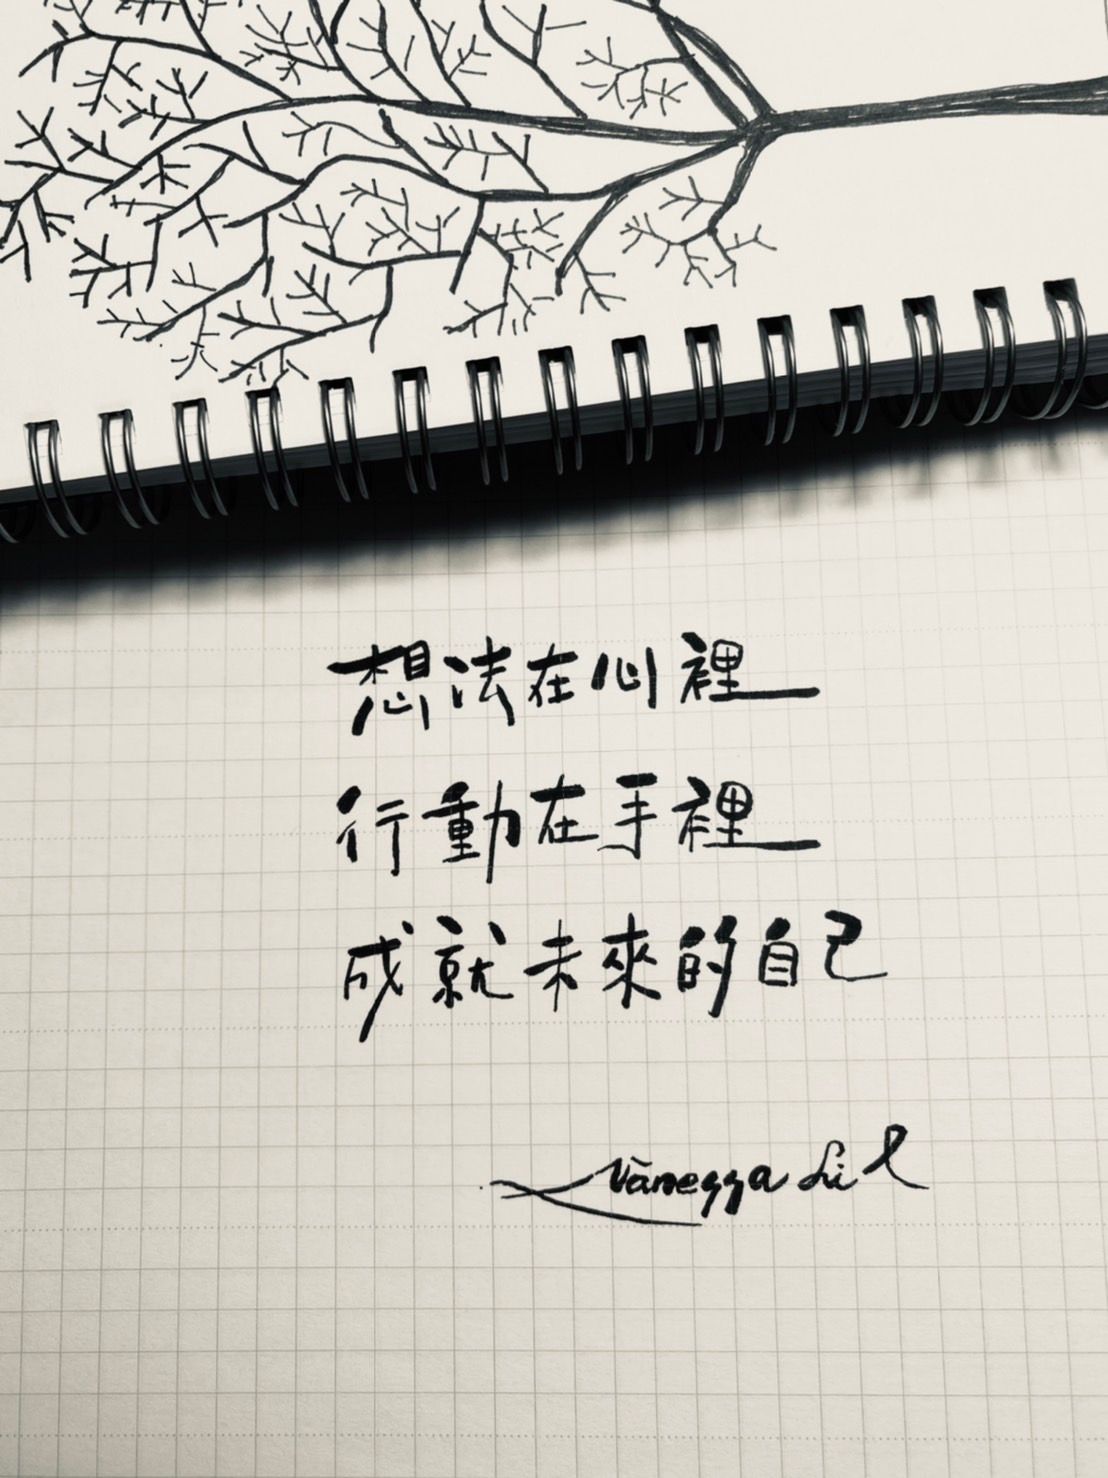 想法在心裡
行動在手裡
成就未來的自己
Vanegga Li